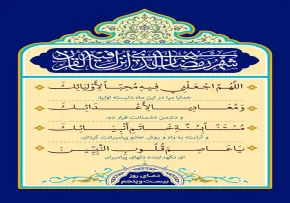 شهر رمضان الذی انزل فیه القرآن
اللهم اجعلنی فیه محبا لاولیائک
خدایا مرا در این ماه دلبسته اولیاء
ومعادیا لاعدائک
و دشمن دشمنانت قرار ده،
مستنا بسنة خاتم انبیائک
و آراسته به راه و روش خاتم پیامبرانت گردان،
یا عاصم قلوب النبیین
ای نگهدارنده دلهای پیامبران
دعای روز
بیست و پنجم